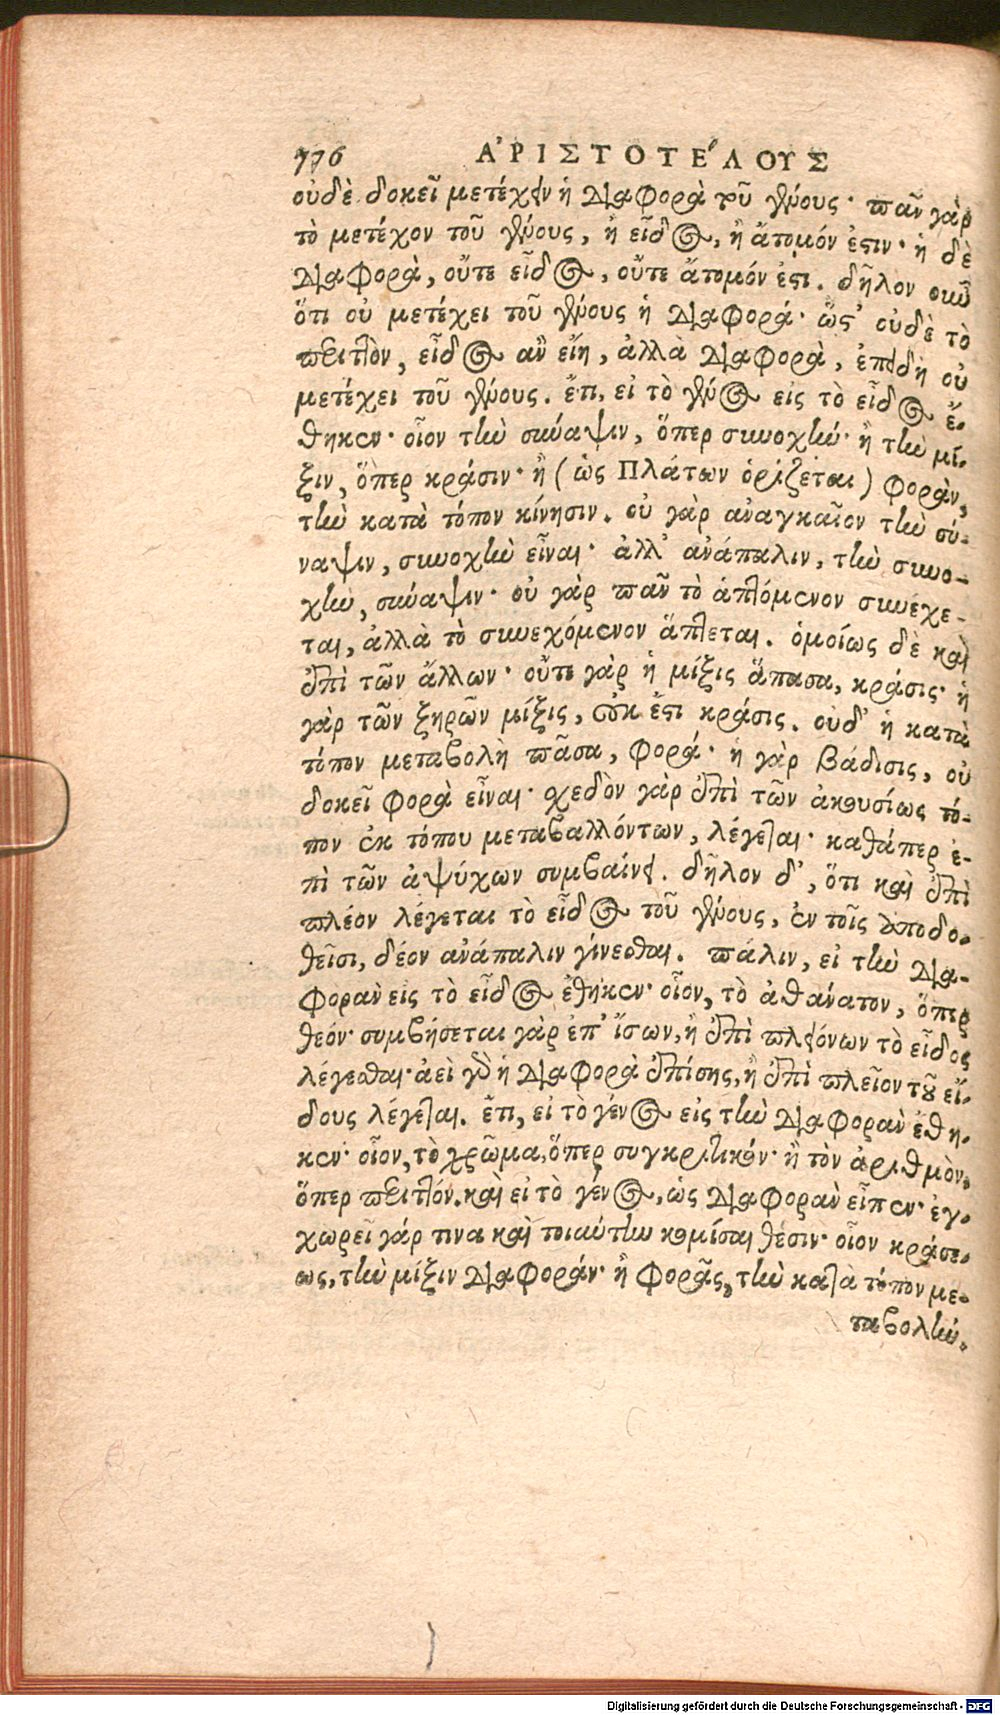 776 ΑΡΙΣΤΟΤΈΛΟΥΣ
οὐδὲ δοκεῖ μετέχειν ἡ διαφορὰ τοῦ γένους· πᾶν γὰρ
τὸ μετέχον τοῦ γένους, ἢ εἶδος, ἢ ἄτομόν ἐστιν· ἡ δὲ
διαφορὰ, οὔτε εἶδος, οὔτε ἄτομόν ἐστι. δῆλον οὖν
ὅτι οὐ μετέχει τοῦ γένους ἡ διαφορά· ὥστ' οὐδὲ τὸ
περιττὸν, εἶδος ἂν εἴη, ἀλλὰ διαφορὰ, ἐπειδὴ οὐ
μετέχει τοῦ γένους. ἔτι, εἰ τὸ γένος εἰς τὸ εἶδος ἔ-
θηκεν· οἷον τὴν σύναψιν, ὅπερ συνοχήν· ἢ τὴν μί-
ξιν, ὅπερ κράσιν· ἢ (ὡς Πλάτων ὁρίζεται) φορὰν,
τὴν κατὰ τόπον κίνησιν. οὐ γὰρ ἀναγκαῖον τὴν σύ-
ναψιν, συνοχὴν εἶναι· ἀλλ' ἀνάπαλιν, τὴν συνο-
χὴν, σύναψιν· οὐ γὰρ πᾶν τὸ ἁπτόμενον συνέχε-
ται, ἀλλὰ τὸ συνεχόμενον ἅπτεται. ὁμοίως δὲ καὶ
ἐπὶ τῶν ἄλλων· οὔτε γὰρ ἡ μίξις ἅπασα, κράσις· ἡ
γὰρ τῶν ξηρῶν μίξις, οὐκ ἔστι κράσις. οὐδ' ἡ κατὰ
τόπον μεταβολὴ πᾶσα, φορά· ἡ γὰρ βάδισις, οὐ
δοκεῖ φορὰ εἶναι· σχεδὸν γὰρ ἐπὶ τῶν ἀκουσίως τό-
πον ἐκ τόπου μεταβαλλόντων, λέγεται· καθάπερ ἐ-
πὶ τῶν ἀψύχων συμβαίνει. δῆλον δ', ὅτι καὶ ἐπὶ
πλέον λέγεται τὸ εἶδος τοῦ γένους, ἐν τοῖς ἀποδο-
θεῖσι, δέον ἀνάπαλιν γίνεσθαι. πάλιν, εἰ τὴν δια-
φορὰν εἰς τὸ εἶδος ἔθηκεν· οἷον, τὸ ἀθάνατον, ὅπερ
θεόν· συμβήσεται γὰρ ἐπ' ἴσων, ἢ ἐπὶ πλειόνων τὸ εἶδος
λέγεσθαι· ἀεὶ γὰρ ἡ διαφορὰ ἐπίσης, ἢ ἐπὶ πλεῖον τοῦ εἴ-
δους λέγεται. ἔτι, εἰ τὸ γένος εἰς τὴν διαφορὰν ἔθη-
κεν· οἷον, τὸ χρῶμα, ὅπερ συγκριτικόν· ἢ τὸν ἀριθμὸν,
ὅπερ περιττόν. καὶ εἰ τὸ γένος, ὡς διαφορὰν εἶπεν· ἐγ-
χωρεῖ γάρ τινα καὶ τοιαύτην κομίσαι θέσιν· οἷον κράσε-
ως, τὴν μίξιν διαφοράν· ἢ φορᾶς, τὴν κατὰ τόπον με-
ταβολήν.
Digitalisierung gefördert durch die Deutsche Forschungsgemeinschaft - DFG